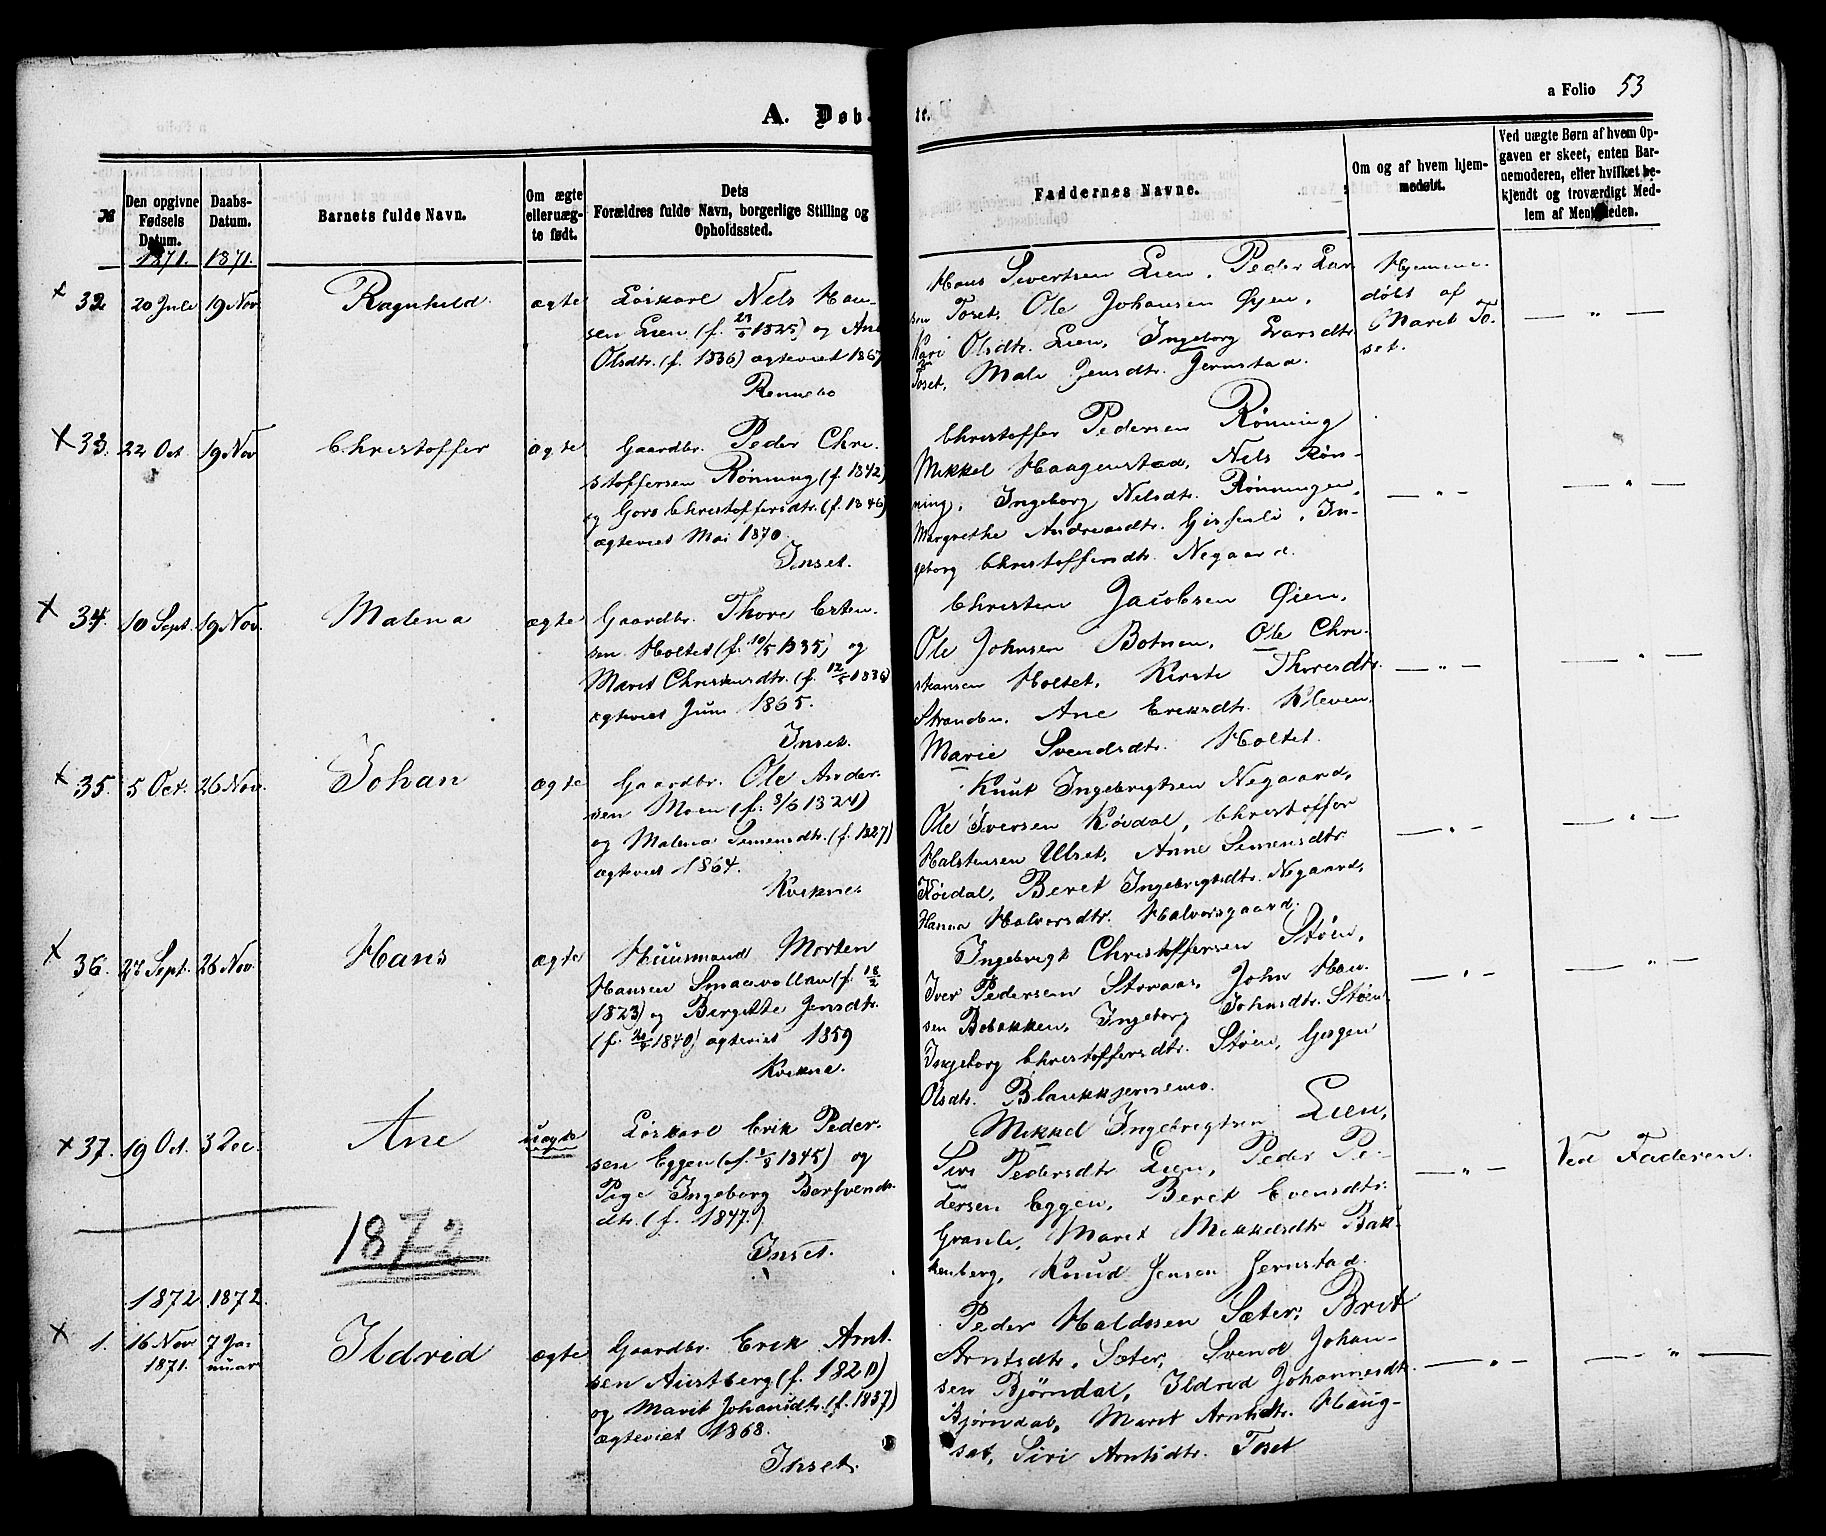 a Folio 53
A. Døb-
te.
№
Den opgivne
Fødsels
Datum.
1871.
Daabs-
Datum.
1871.
Barnets fulde Navn.
Om ægte
eller uæg-
te født.
Dets
Forældres fulde Navn, borgerlige Stilling og
Opholdssted.
Faddernes Navne.
Om og af hvem hjem-
medøbt.
Ved uægte Børn af hvem Op-
gaven er skeet, enten Bar-
nemoderen, eller hvilket be-
kjendt og troværdigt Med-
lem af Menigheden.
x 32 20 Juli 19 Nov. Ragnhild. ægte
Løskarl Nils Han-
sen Lien (f. 1825) og Ane
Olsdtr. (f. 1836) ægteviet 1867
Rennebo
Hans Sivertsen Lien, Peder Lar-
sen Toset, Ole Johansen Øyen,
Kari Olsdtr. Lien, Ingeborg Larsdtr.
Toset, Mali Jensdtr. Jernstad.
Hjemme-
døbt af
Marit To-
set.
— " —
x 33. 22 Oct. 19 Nov Christoffer ægte
Gaardbr. Peder Chri-
stoffersen Rønning (f. 1842)
og Goro Christoffersdtr. (f. 1846)
ægteviet Mai 1870.
Inset.
Christoffer Pedersen Rønning
Mikkel Haagenstad, Nils Røn-
ning, Ingeborg Nilsdtr. Rønningen,
Margrethe Andreasdtr. Gisfenli, In-
geborg Christoffersdtr. Negaard.
— " —
— " —
x 34. 10 Sept. 19 Nov. Malena ægte
Gaardbr. Thore Esten-
sen Holtet (f. 10/5 1835) og
Marit Christensdtr. (f. 12/5 1836)
ægteviet Juni 1865.
Inset.
Christen Jacobsen Øien,
Ole Johnsen Botnen, Ole Chri-
stiansen Holtet, Kirsti Thoresdtr.
Stranden, Ane Eriksdtr. Kleven,
Marie Svendsdtr. Holtet.
— " —
— " —
x 35. 5 Oct. 26 Nov. Johan ægte
Gaardbr. Ole Ander-
sen Moen (f. 3/6 1824)
og Malena Simensdtr. (f. 1827)
ægteviet 1864.
Kvikne
Knut Ingebrigtsen Negaard,
Ole Iversen Køidal, Christoffer
Halstensen Ulset, Anne Simensdtr
Køidal, Beret Ingebrigtsdtr. Negaard,
Hanna Halvorsdtr. Halvorsgaard.
— " —
— " —
x 36. 27 Sept. 26 Nov. Hans ægte
Huusmand Morten
Hansen Smaavollan (f. 18/2
1823) og Birgitte Jensdtr.
(f. 1840) ægteviet 1859
Kvikne.
Ingebrigt Christoffersen Støen,
Iver Pedersen Storaas, John Han-
sen Bobakken, Ingeborg Johnsdtr. Støen
Ingeborg Christoffersdtr. Støen, Gjøgen
Olsdtr. Blankkjernsmo.
— " —
— " —
x 37. 19 Oct. 3 Dec. Ane uægte
Løskarl Erik Peder-
sen Eggen (f. 1845) og
Pige Ingeborg Bersvends-
dtr. (f. 1847.)
Inset.
Mikkel Ingebrigtsen Lien,
Siri Pedersdtr Lien, Peder Pe-
dersen Eggen, Beret Evensdtr.
Granli, Marit Mikkelsdtr. Bak-
kenberg, Knud Jensen Jernstad.
— " —
Ved Faderen.
1872
1872 1872.
x 1. 16 Nov
1871. 7 Ja-
nuar Ildrid ægte
Gaardbr. Erik Arnt-
sen Austberg (f. 1820)
og Marit Johansdtr. (f. 1837)
ægteviet 1868.
Inset.
Peder Haldosen Sæter, Brit
Arntsdtr. Sæter, Svend Johan-
sen Bjørndal, Ildrid Johannesdtr.
Bjørndal, Marit Arntsdtr. Haug-
set, Siri Arntsdtr. Toset
— " —
— " —